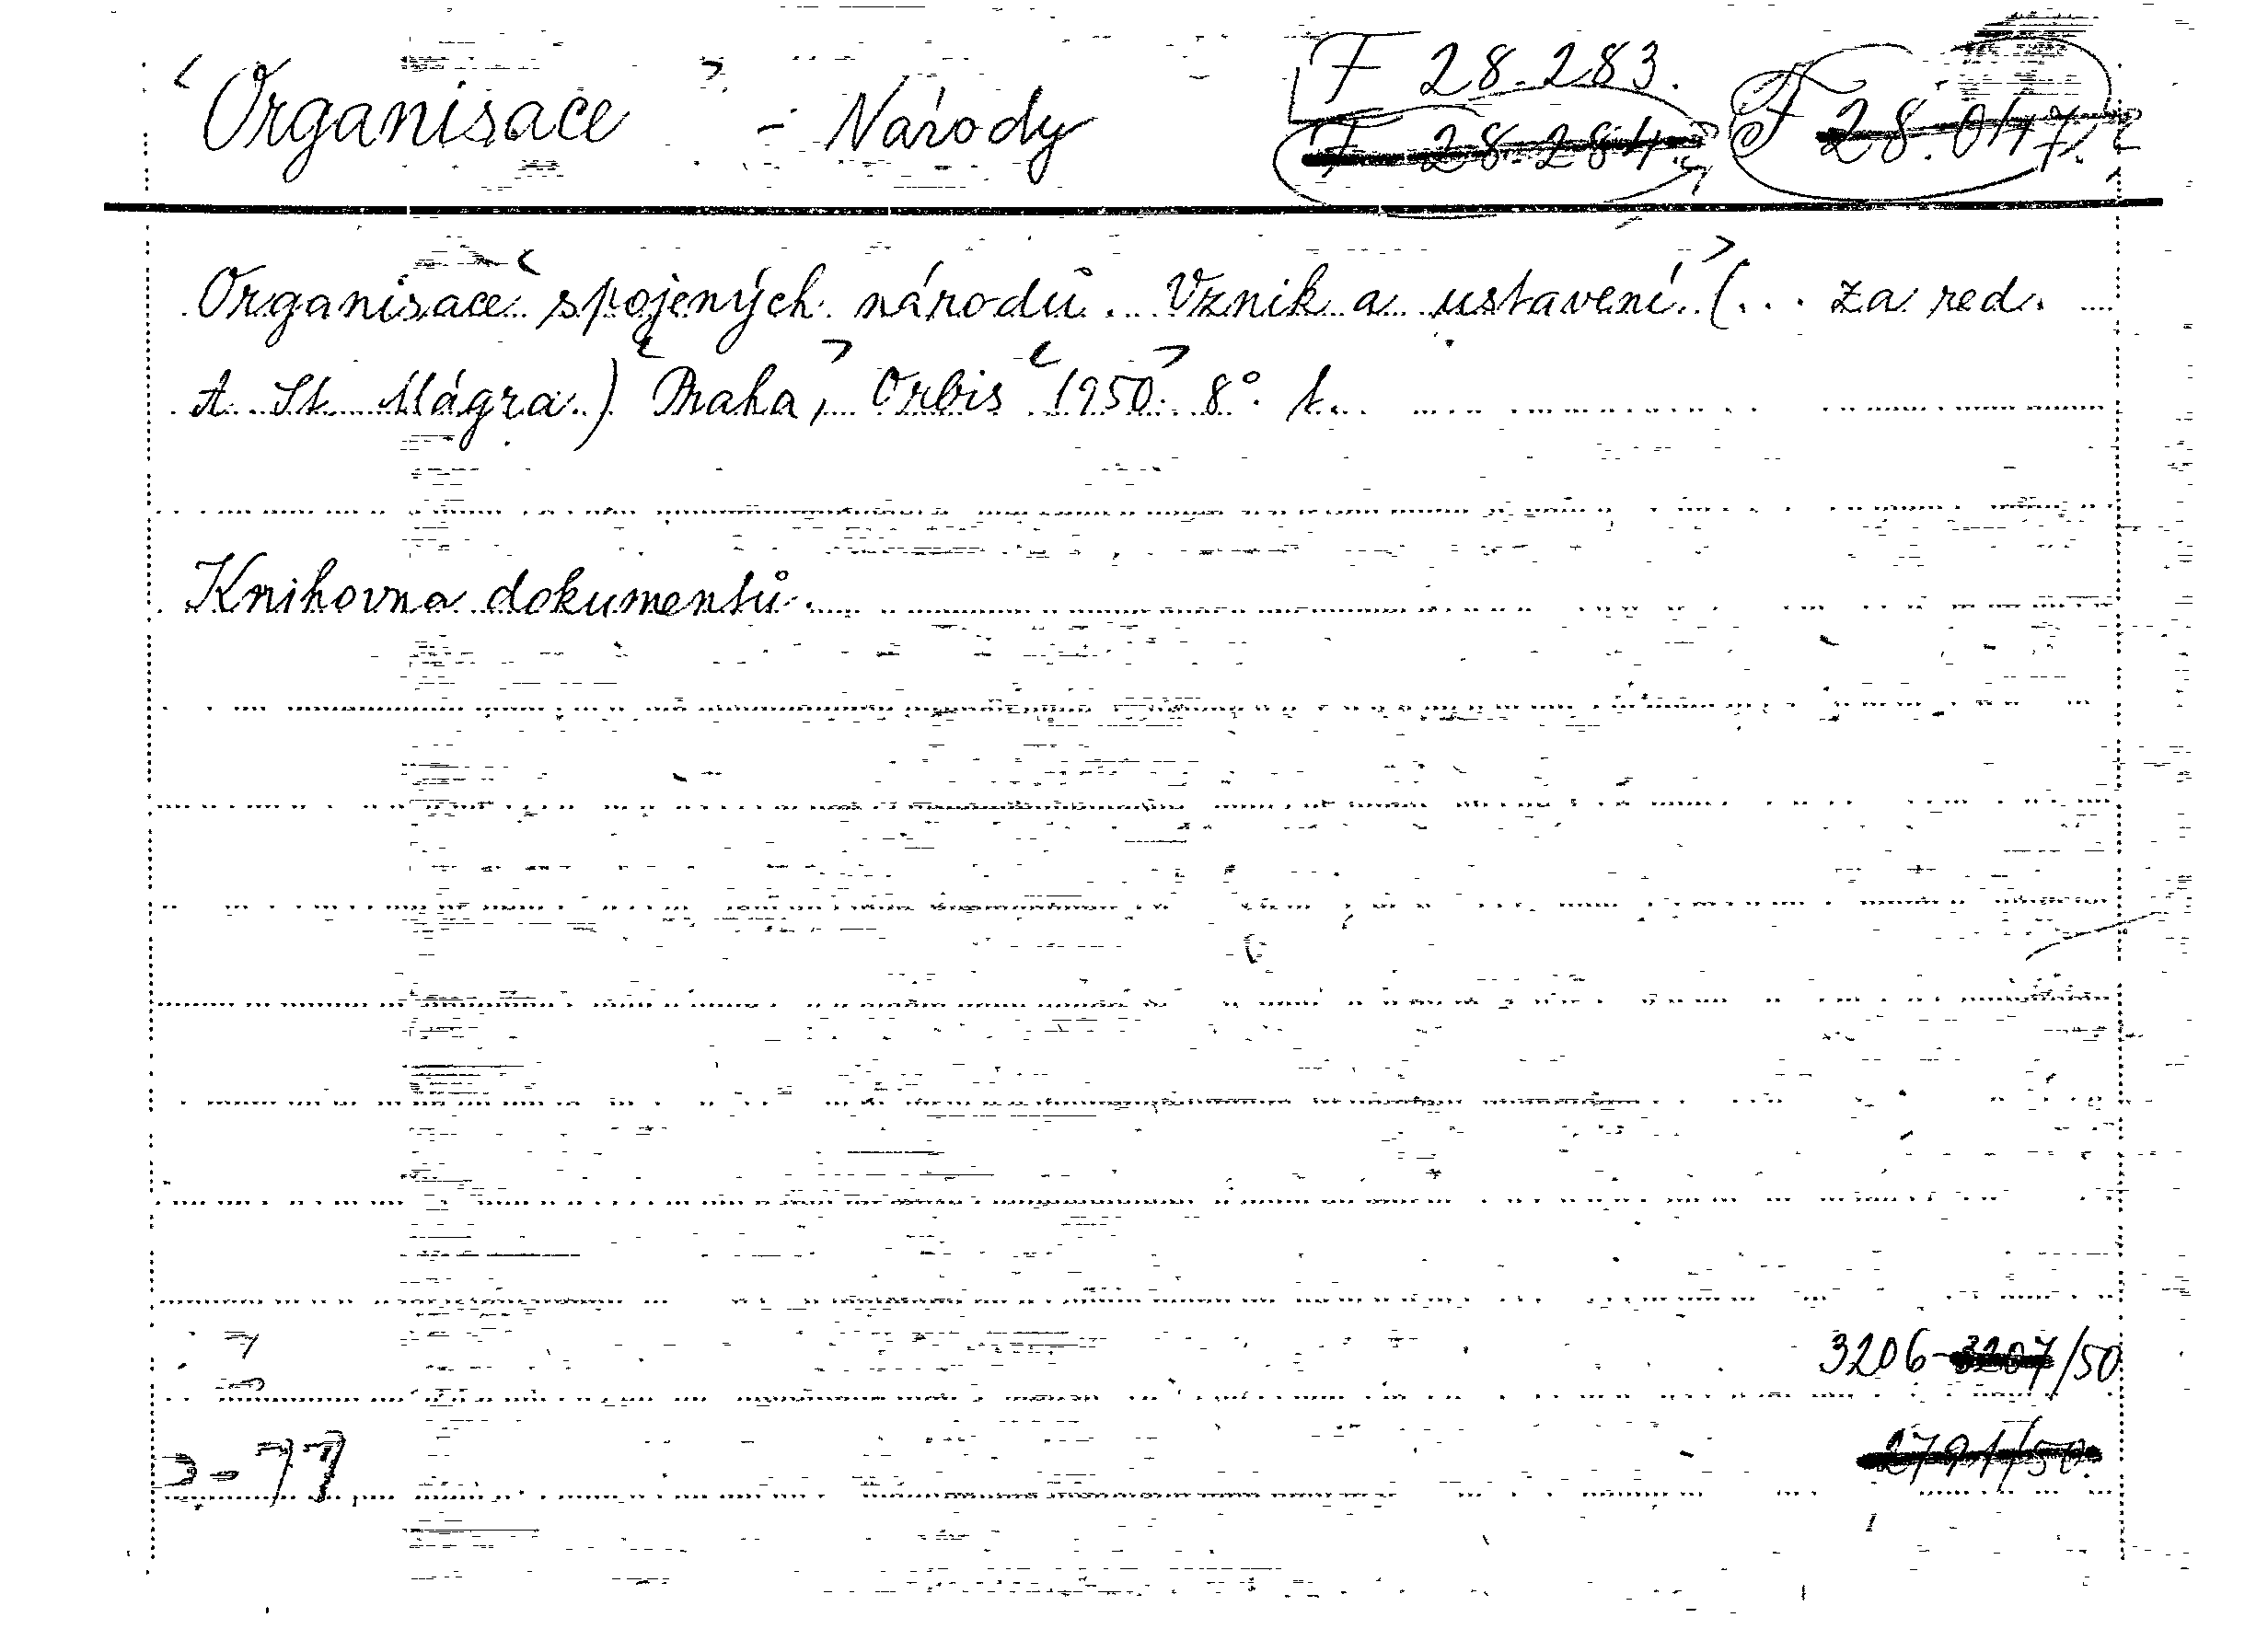 Organisace - Národy F 28.283.
F 28.284 F 28.047.
Organisace spojených národů. Vznik a ustavení. (... za red.
A. St. Mágra.) Praha, Orbis 1950. 8°. 1.
Knihovna dokumentů.
3206-3207/50
2791/50.
D-77